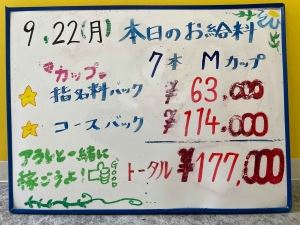 9.22(月) 本日のお給料
7本 Mカップ
カップ
指名料バック ¥63,000
コースバック ¥114,000
アラレと一緒に
稼ごうよ!
トータル ¥177,000